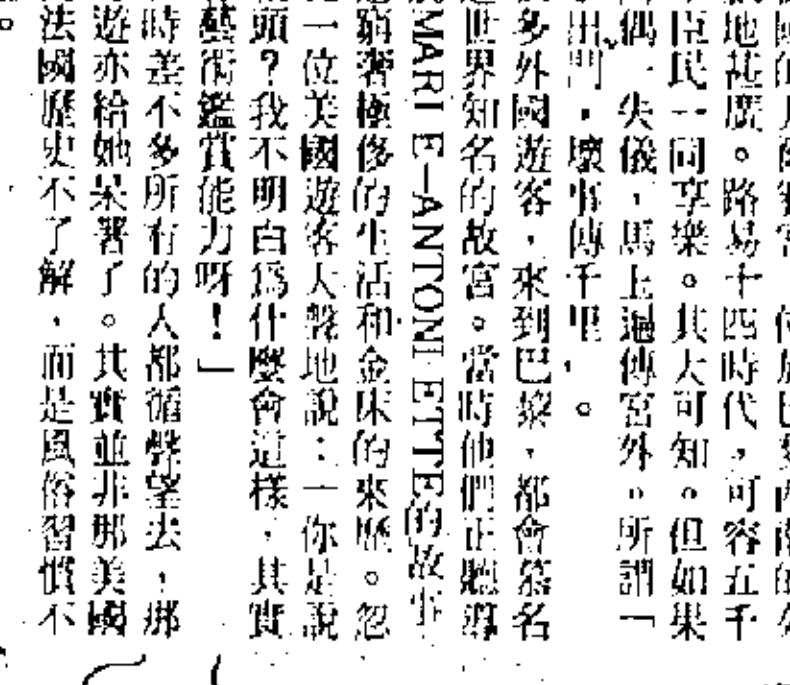 地甚廣。路易十四時代,可容五千
臣民一同享樂。其大可知。但如果
偶一失儀,馬上遍傳宮外。所謂「
出門,壞事傳千里」。
多外國遊客,來到巴黎,都會慕名
世界知名的故宮。當時他們正聽導
MARI E—ANTONI ETTE的故事
窮奢極侈的生活和金床的來歷。忽
一位美國遊客大聲地說:「你是說
頭?我不明白爲什麼會這樣,其實
藝術鑑賞能力呀!」
時差不多所有的人都循聲望去,那
遊亦給她呆著了。其實並非那美國
法國歷史不了解,而是風俗習慣不
。